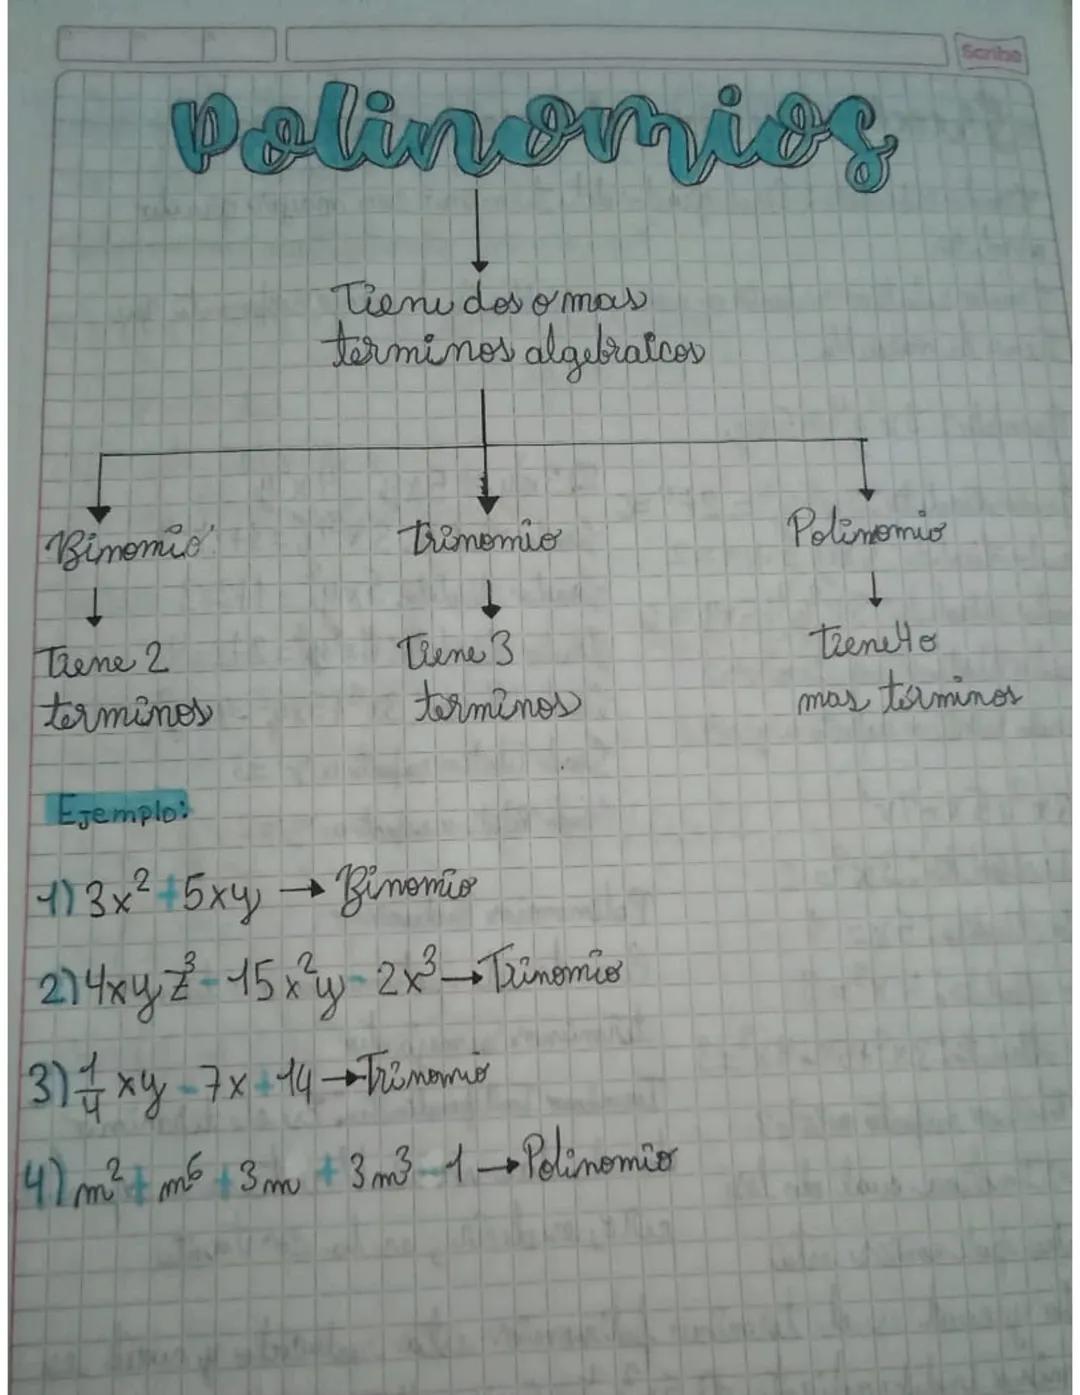 Scribe
Polinomios
Tiene dos o mas
terminos algebraicos
Binomio
Trinomio
Polinomio
Tiene 2
terminos
Tiene 3
terminos
tiene 4 o
mas terminos
Ejemplo:
1) 3x² + 5xy → Binomio
2) 4xyz³ - 15x²y - 2x³ → Trinomio
3) 1/4 xy - 7x + 14 → Trinomio
4) m² + m⁶ + 3m + 3m³ - 1 → Polinomio